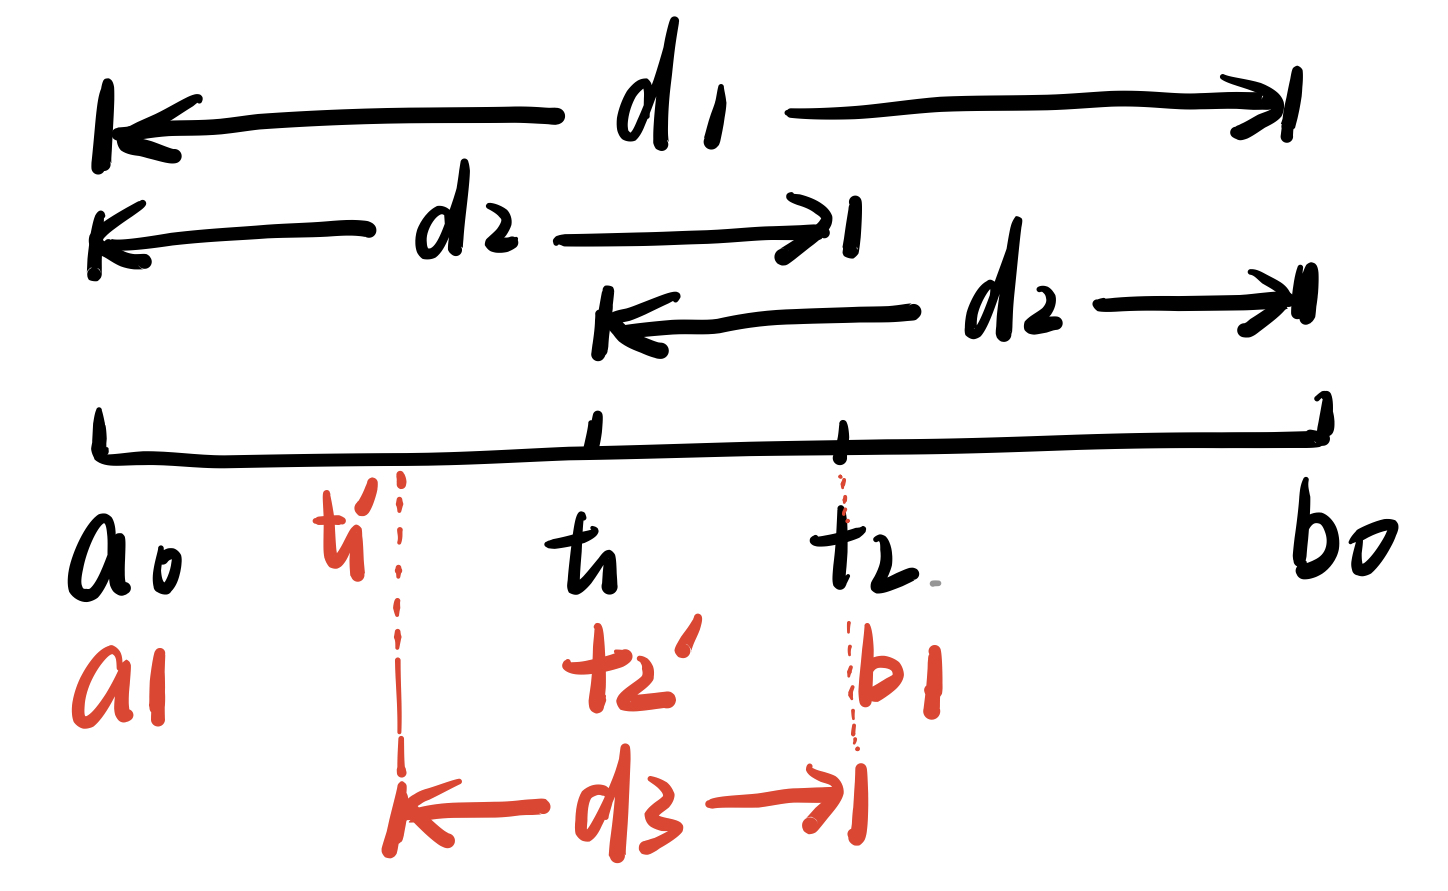 d1
d2
d2
a0 t1' t1 t2 b0
a1 t2' b1
d3